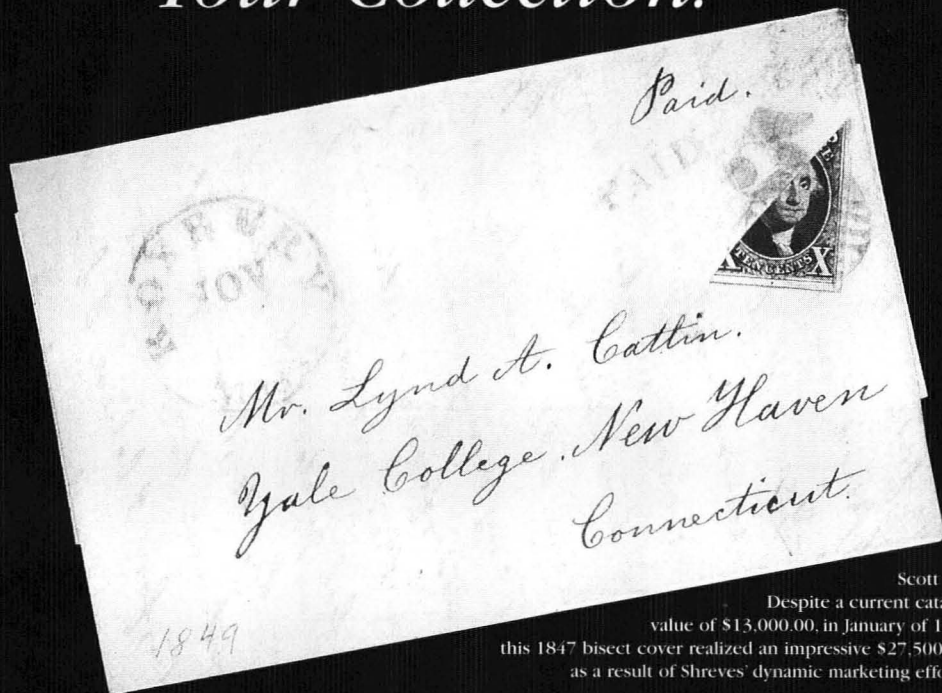 Your Collection.
Paid.
PAID
ROXBURY
NOV
X TEN CENTS X
Mr. Lynd A. Cattin.
Yale College. New Haven
Connecticut.
1849
Scott
Despite a current
value of $13,000.00, in January of
this 1847 bisect cover realized an impressive $27,500
as a result of Shreves' dynamic marketing